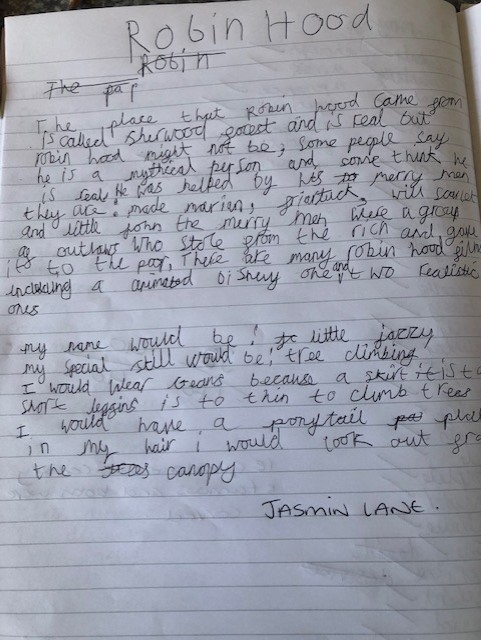 Robin Hood
Robin
The pap
The place that Robin hood came from
is called Sherwood forest and is real but
robin hood might not be, some people say
he is a mythical person and some think he
is real. He was helped by his to merry men
they are: made marian, friartuck, will scarlet
and little john the merry men were a group
of outlaws who stole from the rich and gave
it to the poor, There are many robin hood films
including a animated Disney one and two realistic
ones
my name would be: little jazzy
my special still would be: tree climbing
I would wear Geans because a skirt it is to
short leggins is to thin to climb trees
I would have a ponytail
in my hair i would look out
the canopy
JASMIN LANE.